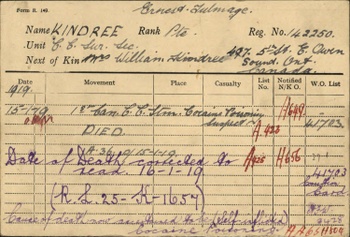 Form R. 149.
Ernest Talmage.
Name KINDREE Rank Pte Reg. No. 142250.
Unit C. C. Sur. Sec.
Next of Kin Mrs William Kindree 427. 5th St. E. Owen
Sound. Ont.
Canada.
Date Movement Place Casualty List No. Notified N/K O. W.O. List
1919.
15-1-19 1st Can. C. C. Stn. Cocaine Poisoning A699 41703
DIED. suspect A925
A36 15-1-19
Date of Death corrected to A925 H656
read. 16-1-19 41703
(R.L.25-K-1657)
Cause of death now Self-inflicted
Cocaine Poisoning